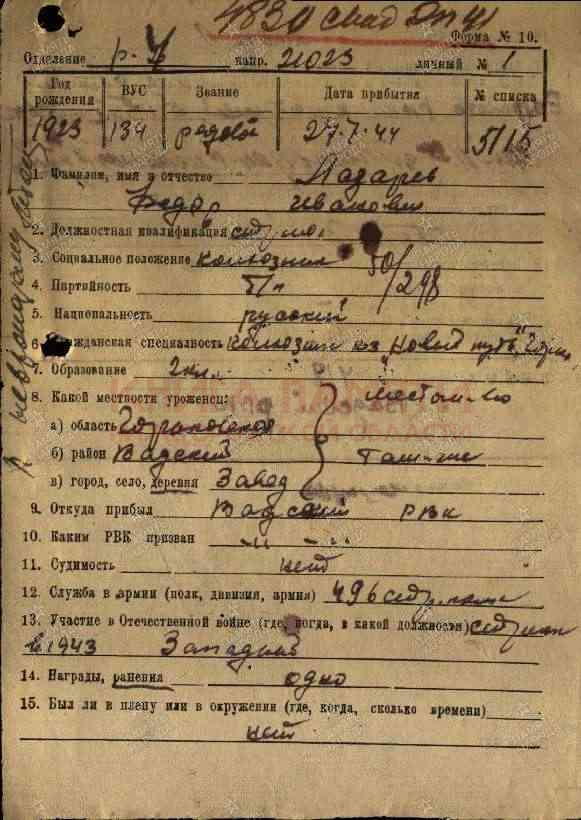 4830 Дп 41
Форма № 10.
Отделение р. у капр. 21023 личный № 1
Год рождения ВУС Звание Дата прибытия № списка
1923 134 рядовой 27.7.44 5/15
1. Фамилия, имя и отчество Лазарев
Федор Иванович
2. Должностная квалификация
3. Социальное положение колхозник 50/298
4. Партийность б/п
5. Национальность русский
6. Гражданская специальность колхозник кз "Новый путь"
7. Образование 2 кл.
КНИГА ПАМЯТИ
8. Какой местности уроженец:
а) область Горьковская
б) район Вадский
в) город, село, деревня Завод
9. Откуда прибыл Вадский РВК
10. Каким РВК призван —„— —„—
11. Судимость нет
12. Служба в армии (полк, дивизия, армия) 496
13. Участие в Отечественной войне (где, когда, в какой должности)
в 1943 Западный
14. Награды, ранения одно
15. Был ли в плену или в окружении (где, когда, сколько времени)
нет